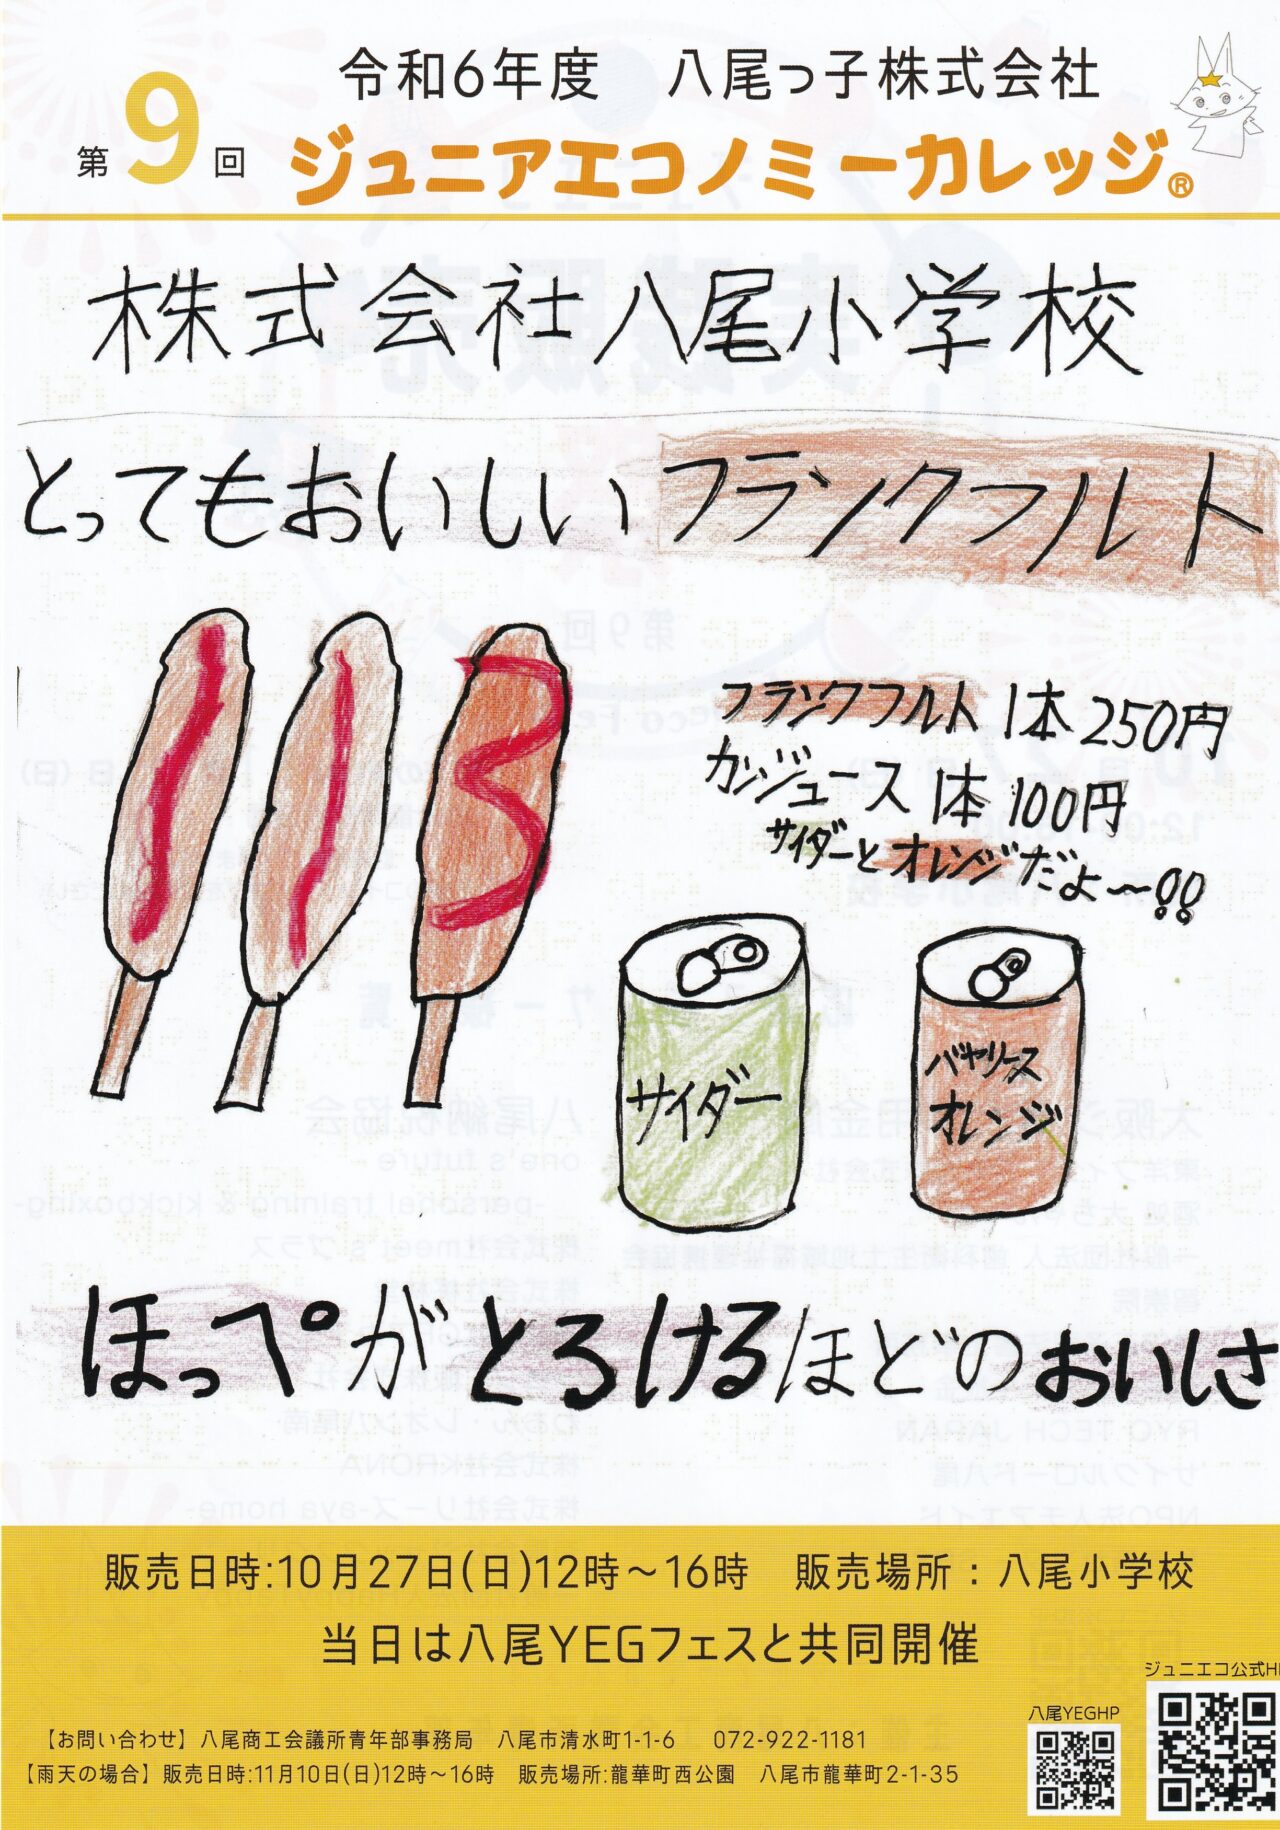 令和6年度 八尾っ子株式会社
第9回 ジュニアエコノミーカレッジ®
株式会社八尾小学校
とってもおいしいフランクフルト
フランクフルト 1本 250円
カンジュース 1本 100円
サイダーとオレンジだよ〜!!
サイダー
バヤリース
オレンジ
ほっぺがとろけるほどのおいしさ
販売日時:10月27日(日)12時～16時 販売場所：八尾小学校
当日は八尾YEGフェスと共同開催
ジュニエコ公式HP
八尾YEGHP
【お問い合わせ】八尾商工会議所青年部事務局 八尾市清水町1-1-6 072-922-1181
【雨天の場合】販売日時:11月10日(日)12時～16時 販売場所:龍華町西公園 八尾市龍華町2-1-35